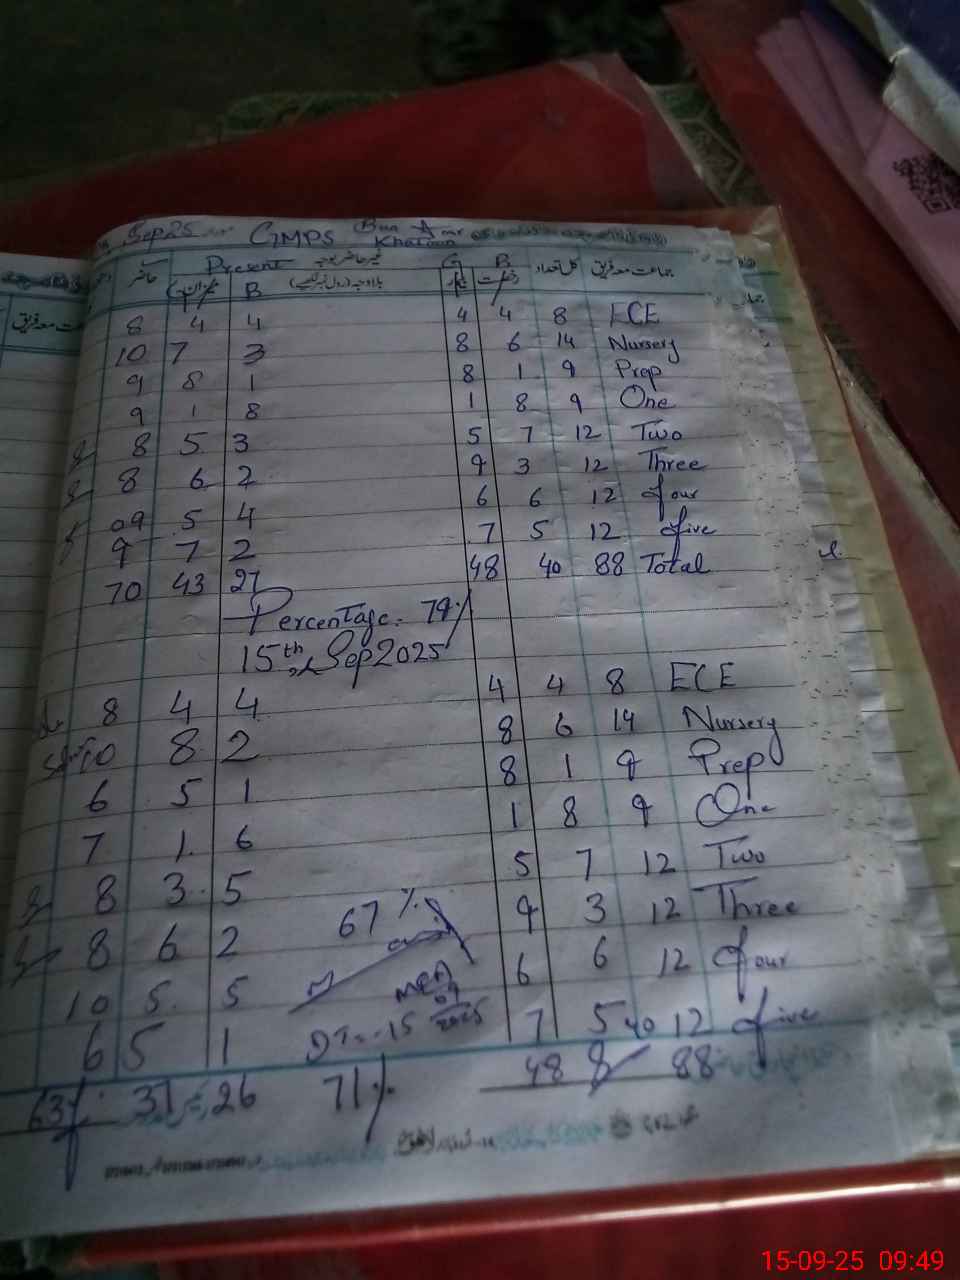 Sep 25 GMPS Bun Amr Khatoon
حاضر Present غیر حاضر بوجہ G B کل تعداد جماعت معہ فریق
B بلاوجہ (رول نمبر لکھیے) بیمار رخصت
8 4 4 4 4 8 ECE
10 7 3 8 6 14 Nursery
9 8 1 8 1 9 Prep
9 1 8 1 8 9 One
8 5 3 5 7 12 Two
8 6 2 9 3 12 Three
09 5 4 6 6 12 four
9 7 2 7 5 12 five
70 43 27 48 40 88 Total
Percentage = 79%
15th, Sep 2025
8 4 4 4 4 8 ECE
10 8 2 8 6 14 Nursery
6 5 1 8 1 9 Prep
7 1 6 1 8 9 One
8 3 5 5 7 12 Two
8 6 2 67% 9 3 12 Three
10 5 5 6 6 12 four
MEA
09
2025
6 5 1 DT=-15 7 5 40 12 five
63 37 26 71% 48 8 88
15-09-25 09:49